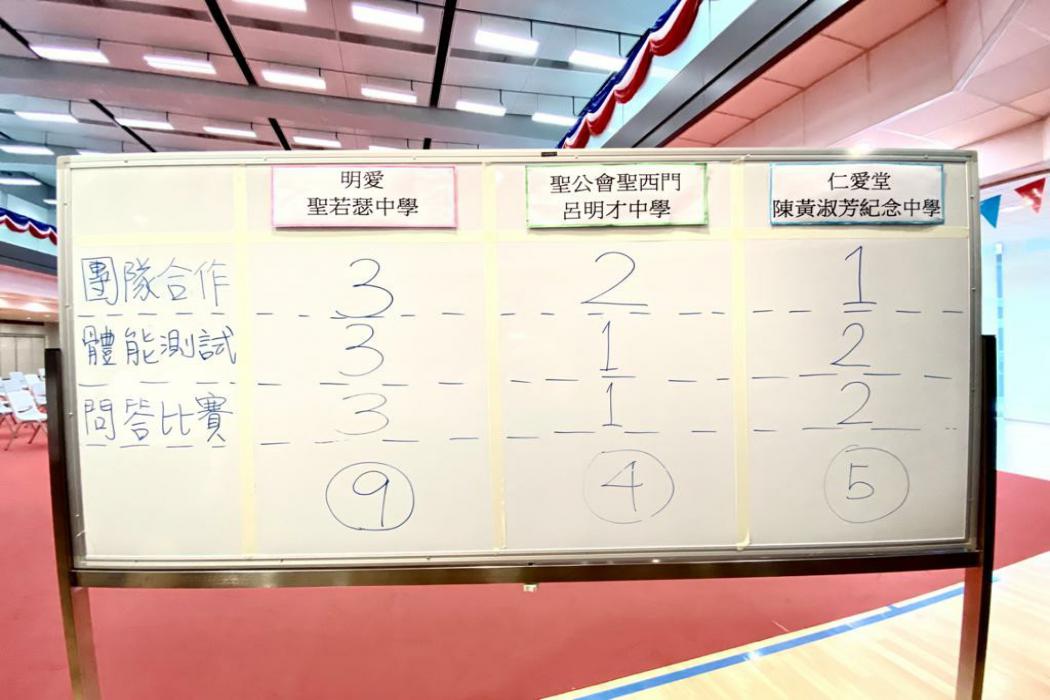 明愛
聖若瑟中學
聖公會聖西門
呂明才中學
仁愛堂
陳黃淑芳紀念中學
團隊合作 3 2 1
體能測試 3 1 2
問答比賽 3 1 2
9 4 5